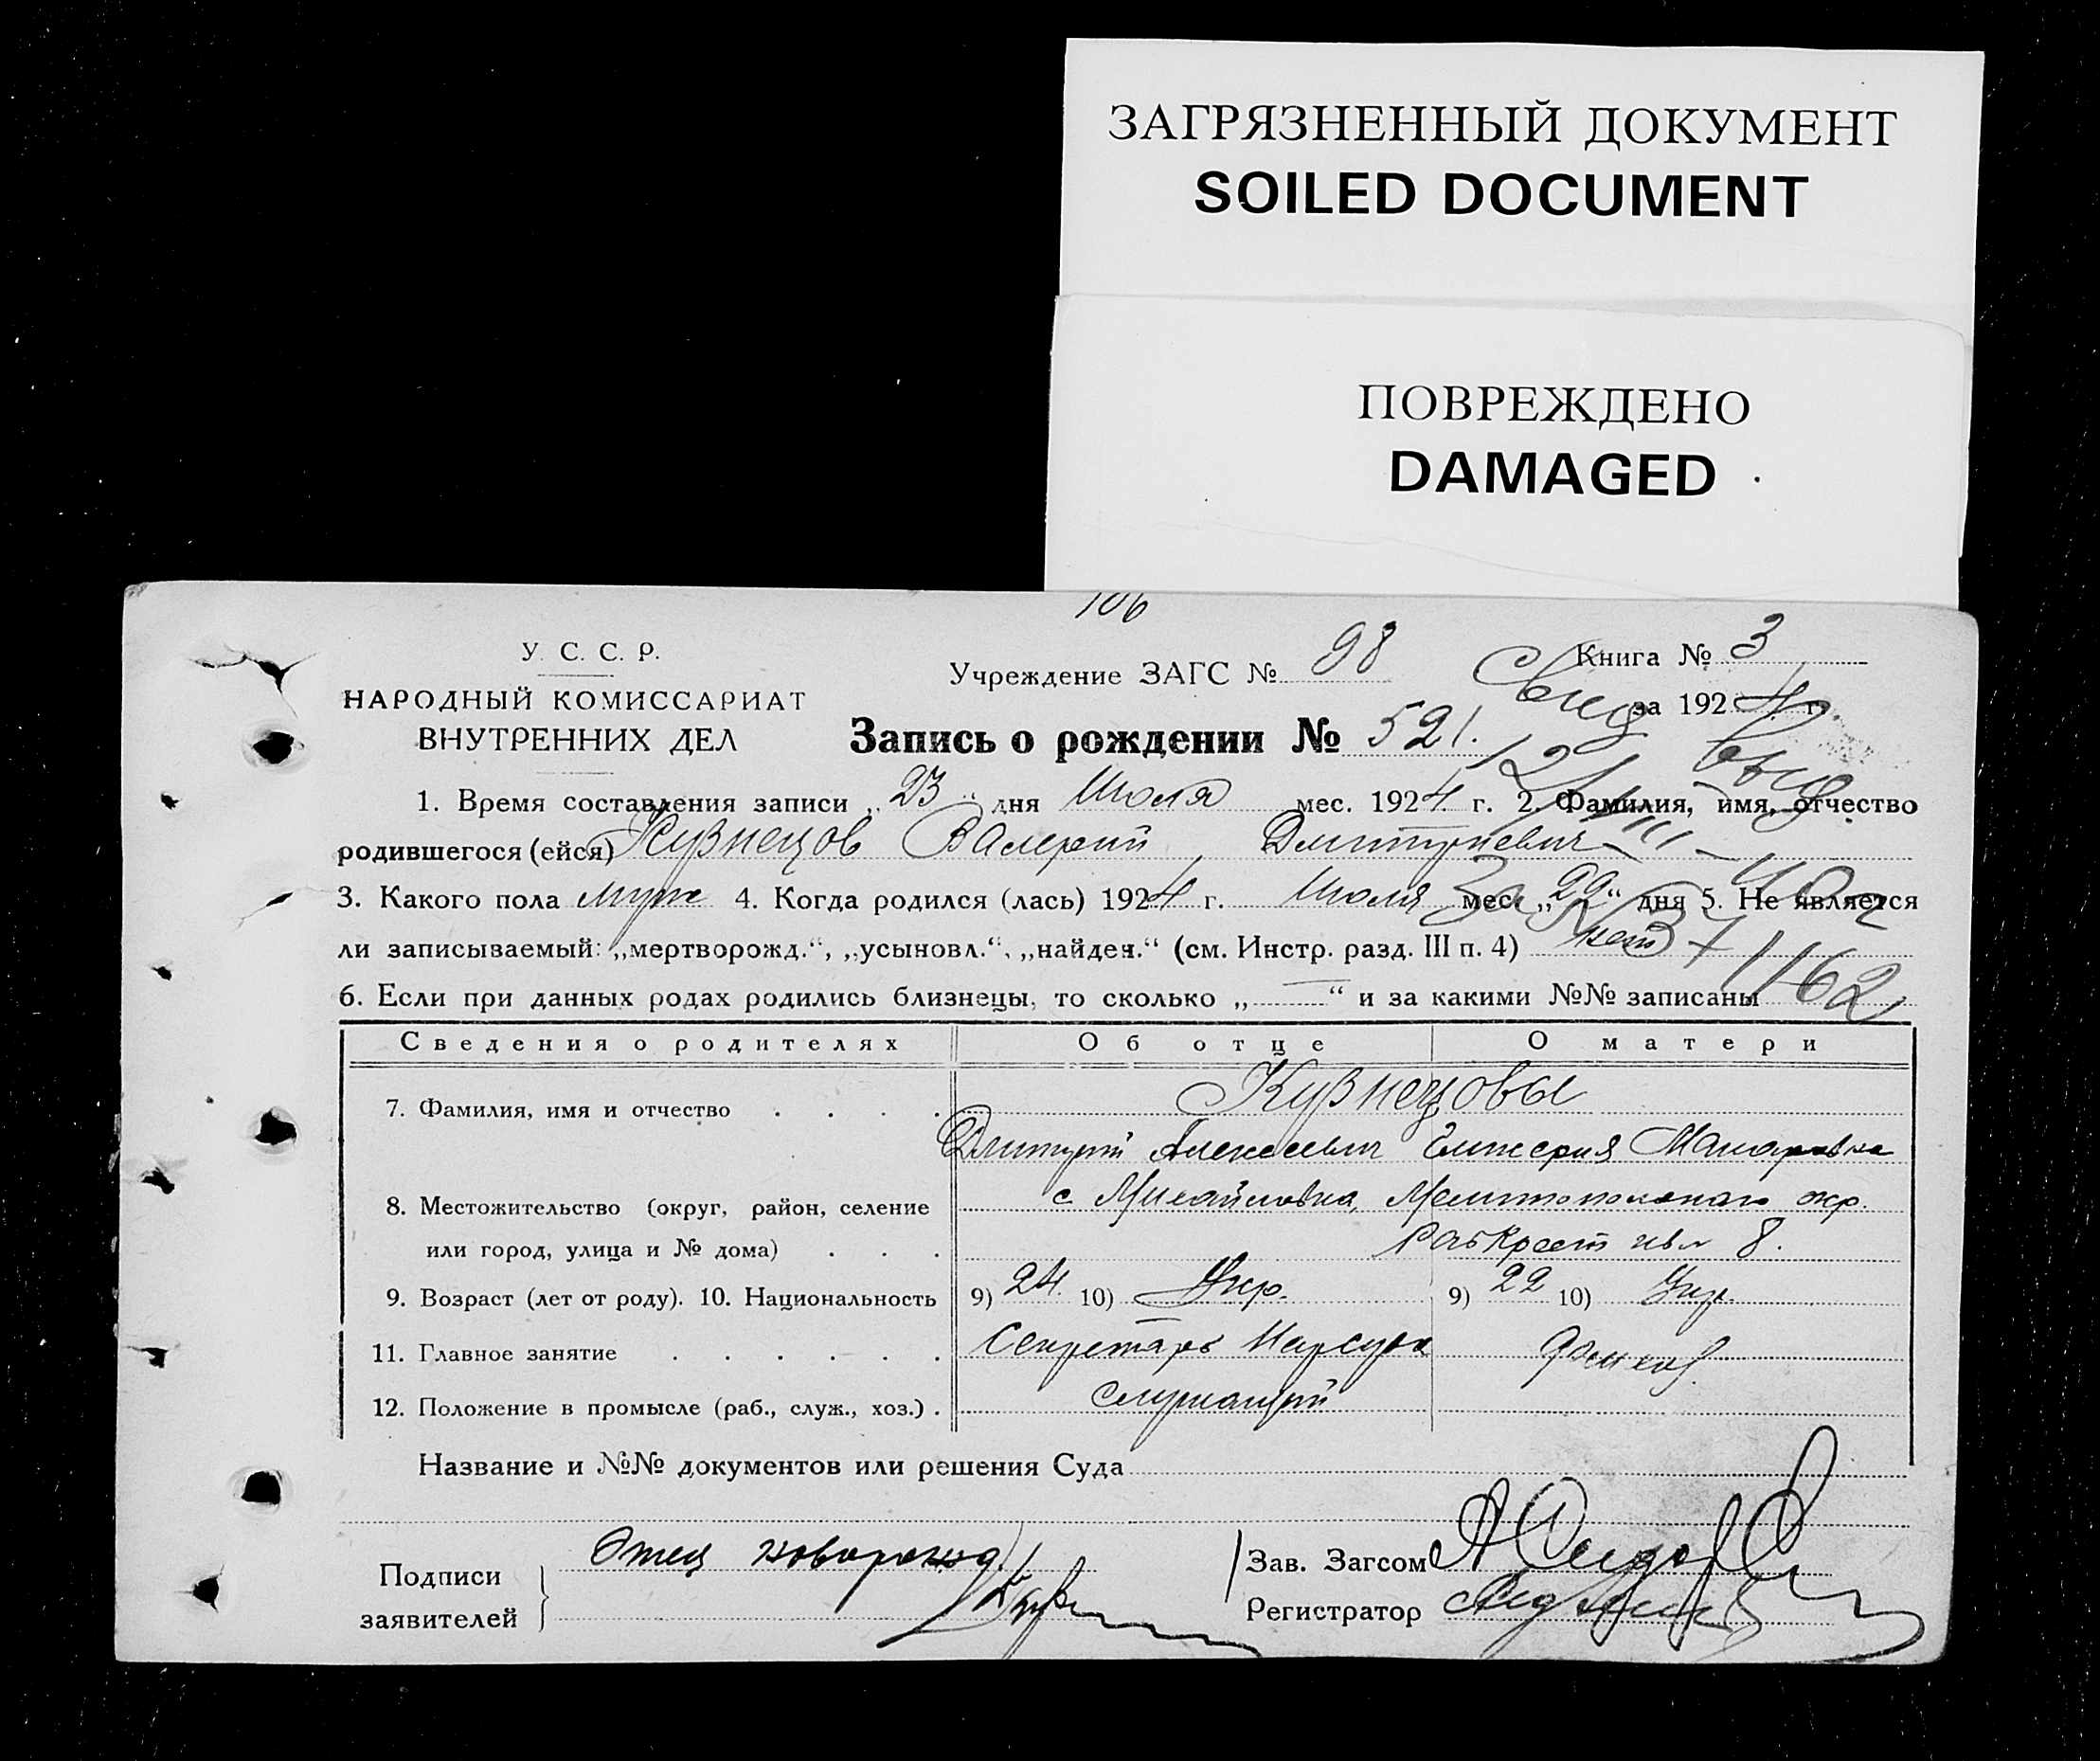 ЗАГРЯЗНЕННЫЙ ДОКУМЕНТ
SOILED DOCUMENT
ПОВРЕЖДЕНО
DAMAGED
106
У. С. С. Р.
НАРОДНЫЙ КОМИССАРИАТ
ВНУТРЕННИХ ДЕЛ
Учреждение ЗАГС № 98
Книга № 3
за 1924 г.
Запись о рождении № 521.
1. Время составления записи „23“ дня Июля мес. 1924 г. 2. Фамилия, имя, отчество
родившегося (ейся) Кузнецов Валерий Дмитриевич
3. Какого пола муж 4. Когда родился (лась) 1924 г. Июля мес. „22“ дня 5. Не является
ли записываемый: „мертворожд.“, „усыновл.“, „найден.“ (см. Инстр. разд. III п. 4) нет
6. Если при данных родах родились близнецы, то сколько „—“ и за какими №№ записаны
Свид
1162
Сведения о родителях Об отце О матери
7. Фамилия, имя и отчество Кузнецовы
Дмитрий Алексеевич Макаровна
8. Местожительство (округ, район, селение с. Михайловка, Мелитопольского окр.
или город, улица и № дома) 8.
9. Возраст (лет от роду). 10. Национальность 9) 24 10) Укр. 9) 22 10) Укр.
11. Главное занятие Секретарь Нарсуда
12. Положение в промысле (раб., служ., хоз.) служащий
Название и №№ документов или решения Суда
Подписи
заявителей
Отец новорожд.
Зав. Загсом
Регистратор